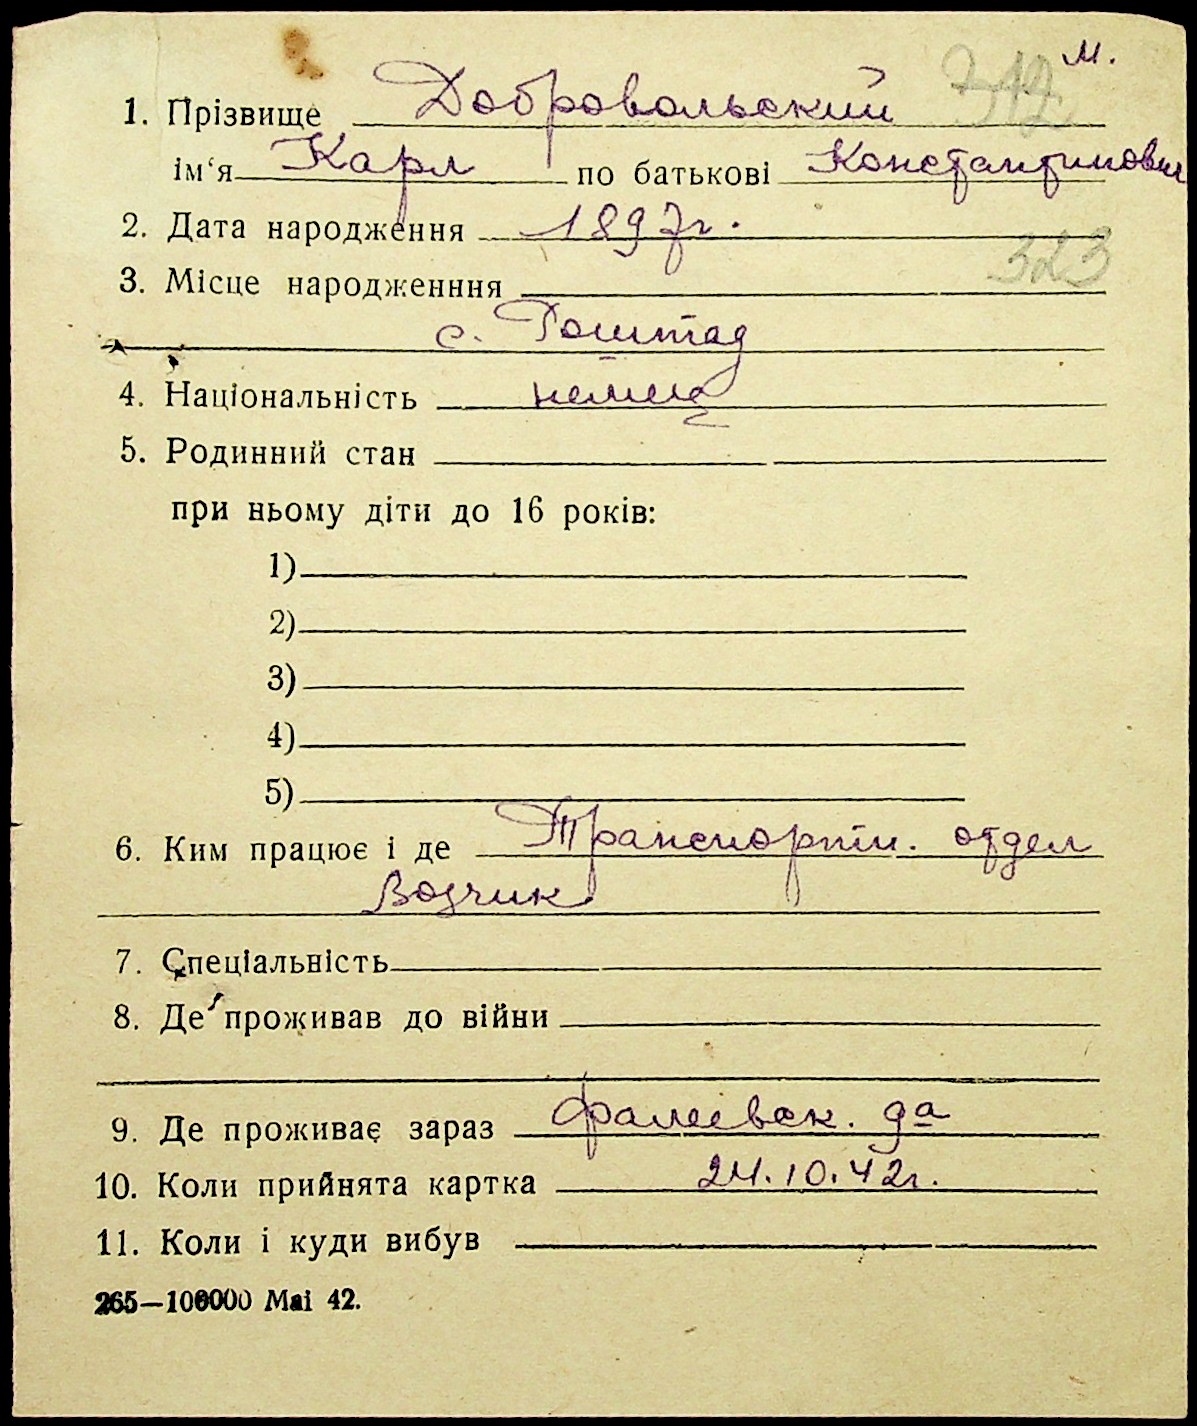 м.
1. Прізвище Добровольский
ім‘я Карл по батькові Константинович
2. Дата народження 1897г.
323
3. Місце народженння
с. Гоштад
4. Національність немец
5. Родинний стан
при ньому діти до 16 років:
1)
2)
3)
4)
5)
6. Ким працює і де Транспортн. отдел
Возчик
7. Спеціальність
8. Де проживав до війни
9. Де проживає зараз
10. Коли прийнята картка 24.10.42г.
11. Коли і куди вибув
265—100000 Mai 42.